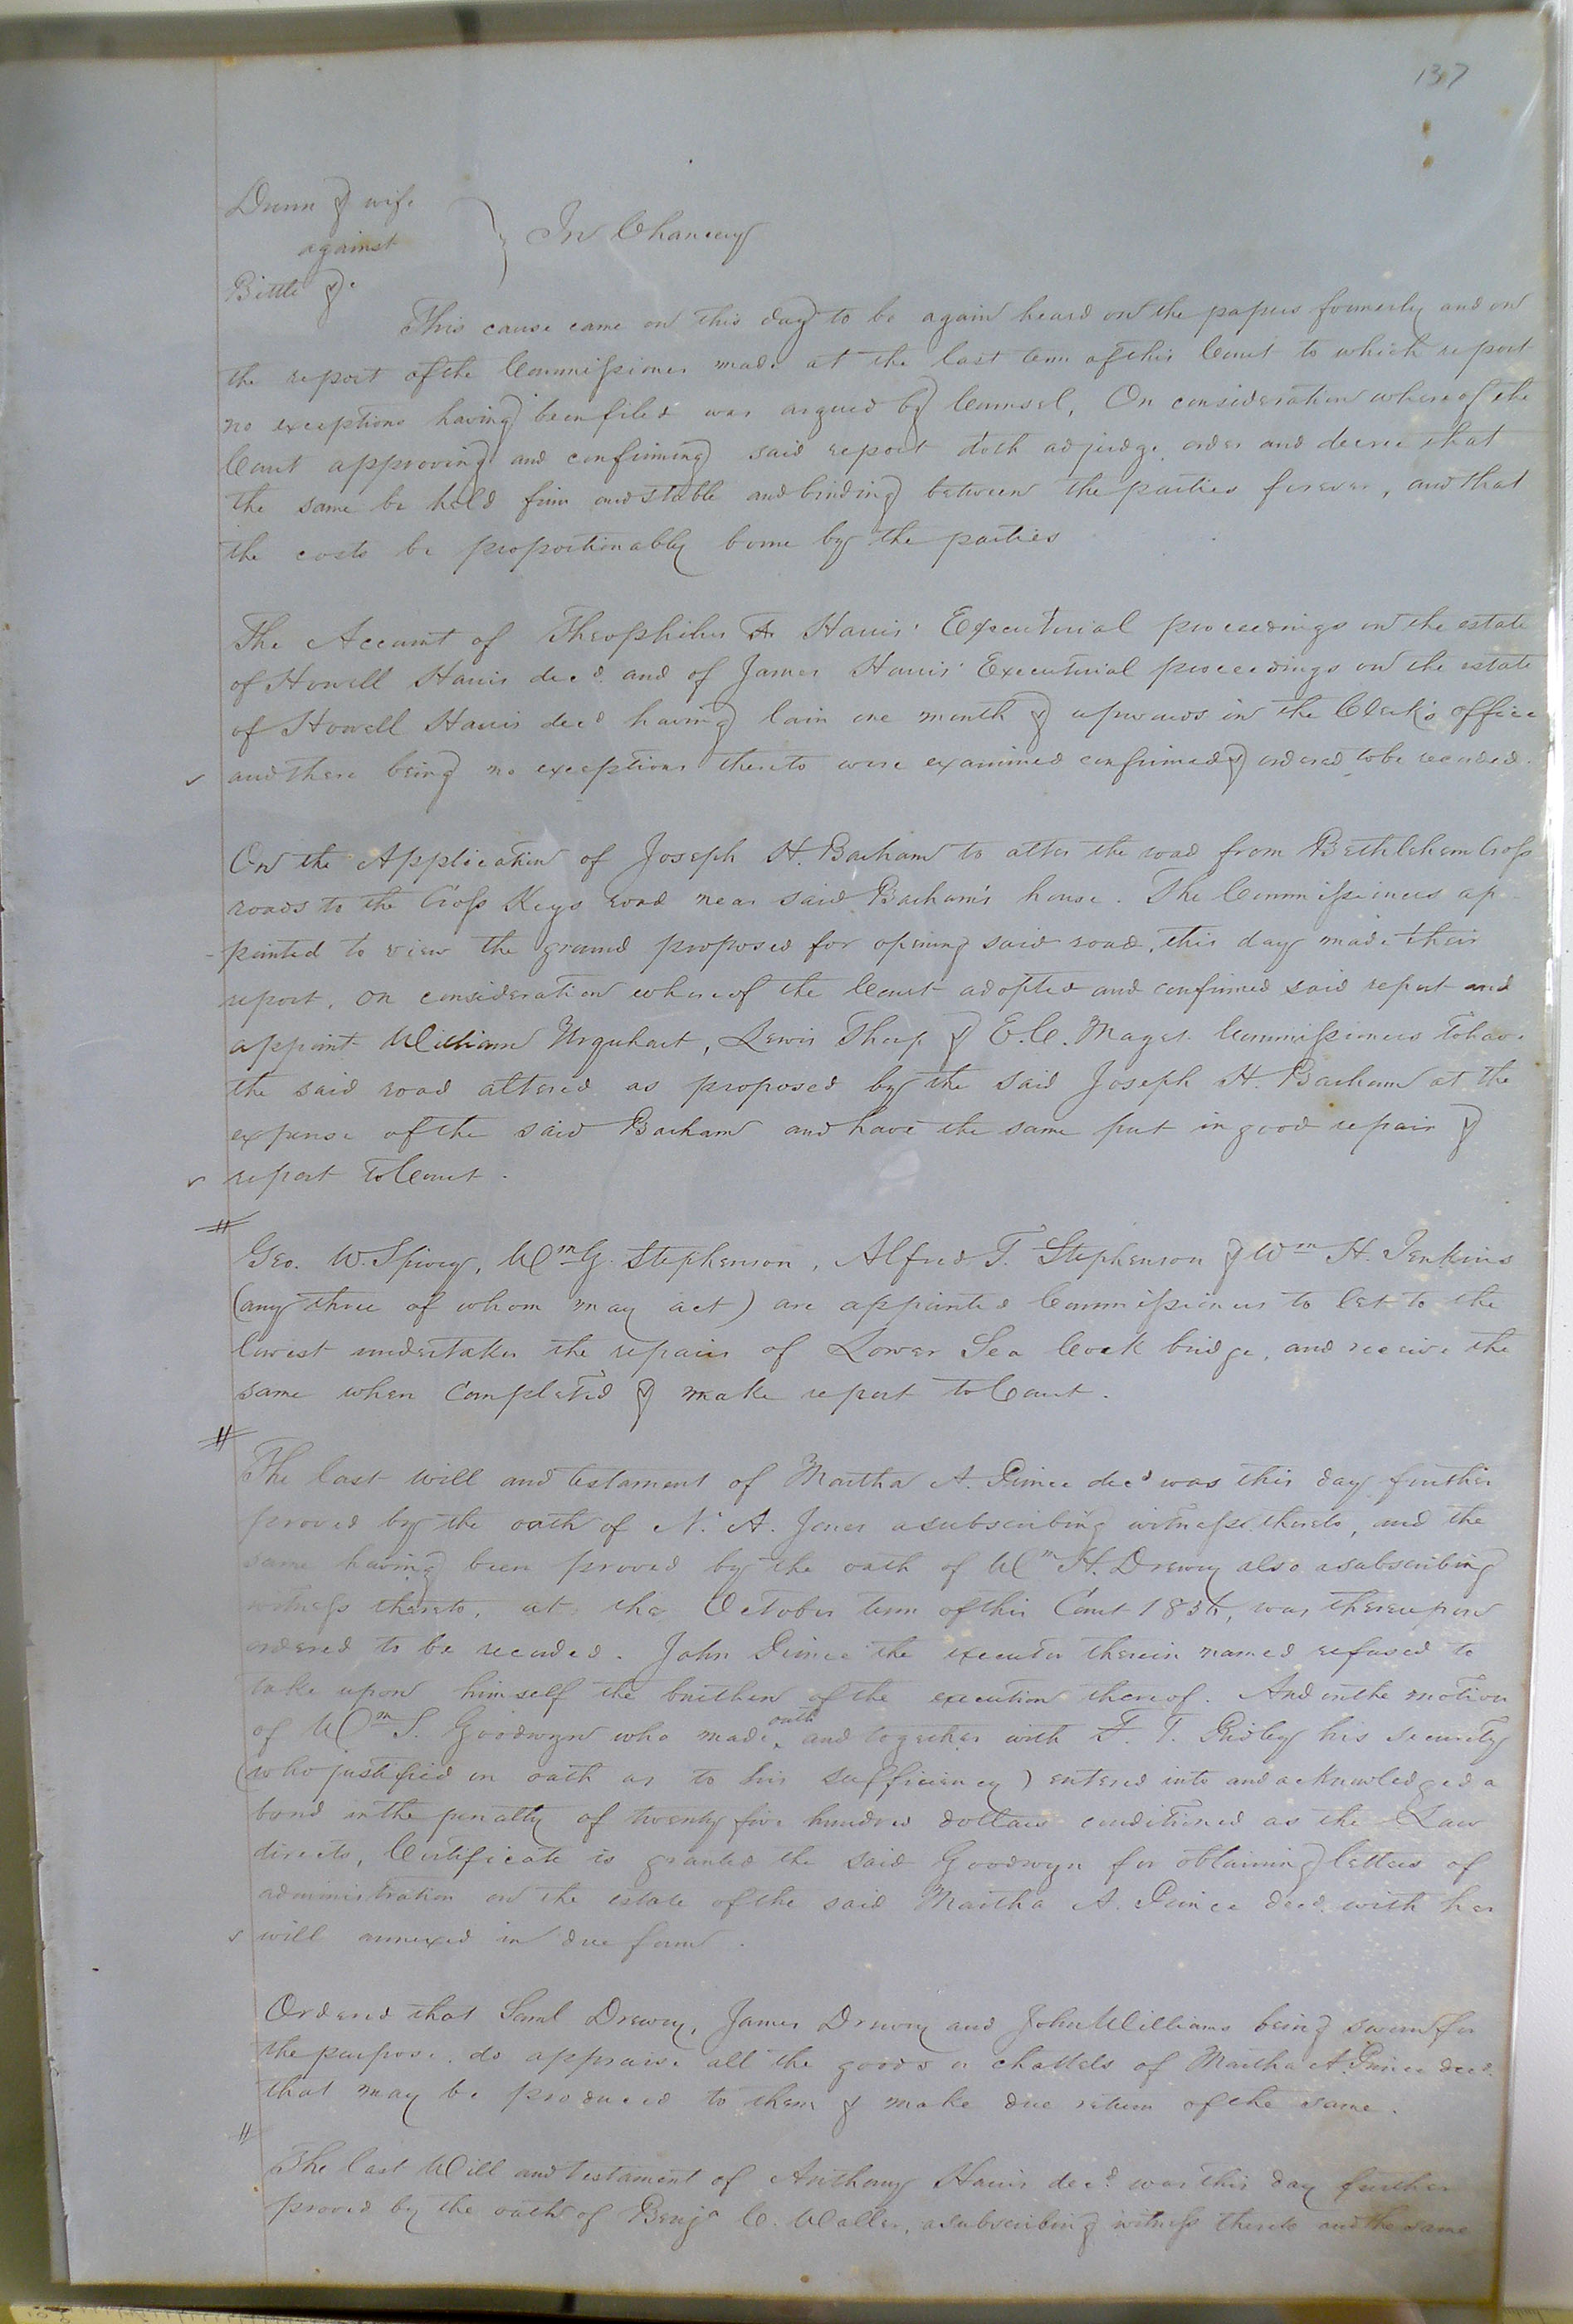 137
Dunn & wife
against
Bittle &c
In Chancery
This cause came on this day to be again heard on the papers formerly and on
the report of the Commissioner made at the last term of this Court to which report
no exceptions having been filed was argued by Counsel, On consideration whereof the
Court approving and confirming said report doth adjudge order and decree that
the same be held firm and stable and binding between the parties forever, and that
the costs be proportionably borne by the parties
The Account of Theophilus Harris' Executorial proceedings on the estate
of Howell Harris decd. and of James Harris' Executorial proceedings on the estate
of Howell Harris decd having lain one month & upwards in the Clerk's office
and there being no exceptions thereto were examined confirmed & ordered to be recorded.
On the Application of Joseph H. Barham to alter the road from Bethlehem Cross
roads to the Cross Keys road near said Barham's house. The Commissioners ap-
-pointed to view the ground proposed for opening said road, this day made their
report, on consideration whereof the Court adopted and confirmed said report and
appoint William Urquhart, Lewis Thorp & E. C. Mayes. Commissioners to have
the said road altered as proposed by the said Joseph H. Barham at the
expense of the said Barham and have the same put in good repair &
report to Court.
Geo. W. Spivey, Wm G. Stephenson, Alfred T. Stephenson & Wm H. Jenkins
(any three of whom may act) are appointed Commissioners to let to the
lowest undertaker the repairs of Lower Sea Cock bridge, and receive the
same when completed & make report to Court.
The last will and testament of Martha A. Prince decd was this day further
proved by the oath of N. A. Jones a subscribing witness thereto, and the
same having been proved by the oath of Wm H. Drewry also a subscribing
witness thereto, at the October term of this Court was thereupon
ordered to be recorded. John Prince the executor therein named refused to
take upon himself the burthen of the execution thereof. And on the motion
of Wm S. Goodwyn who made oath and together with F. T. Ridley his security
(who justified on oath as to his sufficiency) entered into and acknowledged a
bond in the penalty of twenty five hundred dollars conditioned as the Law
directs, Certificate is granted the said Goodwyn for obtaining letters of
administration on the estate of the said Martha A. Prince decd. with her
will annexed in due form.
Ordered that Saml Drewry, James Drewry and John Williams being sworn for
the purpose, do appraise all the goods & chattels of Martha A. Prince decd.
that may be produced to them & make due return of the same.
The last Will and testament of Anthony Harris decd. was this day further
proved by the oath of Benja C. Waller, a subscribing witness thereto and the same